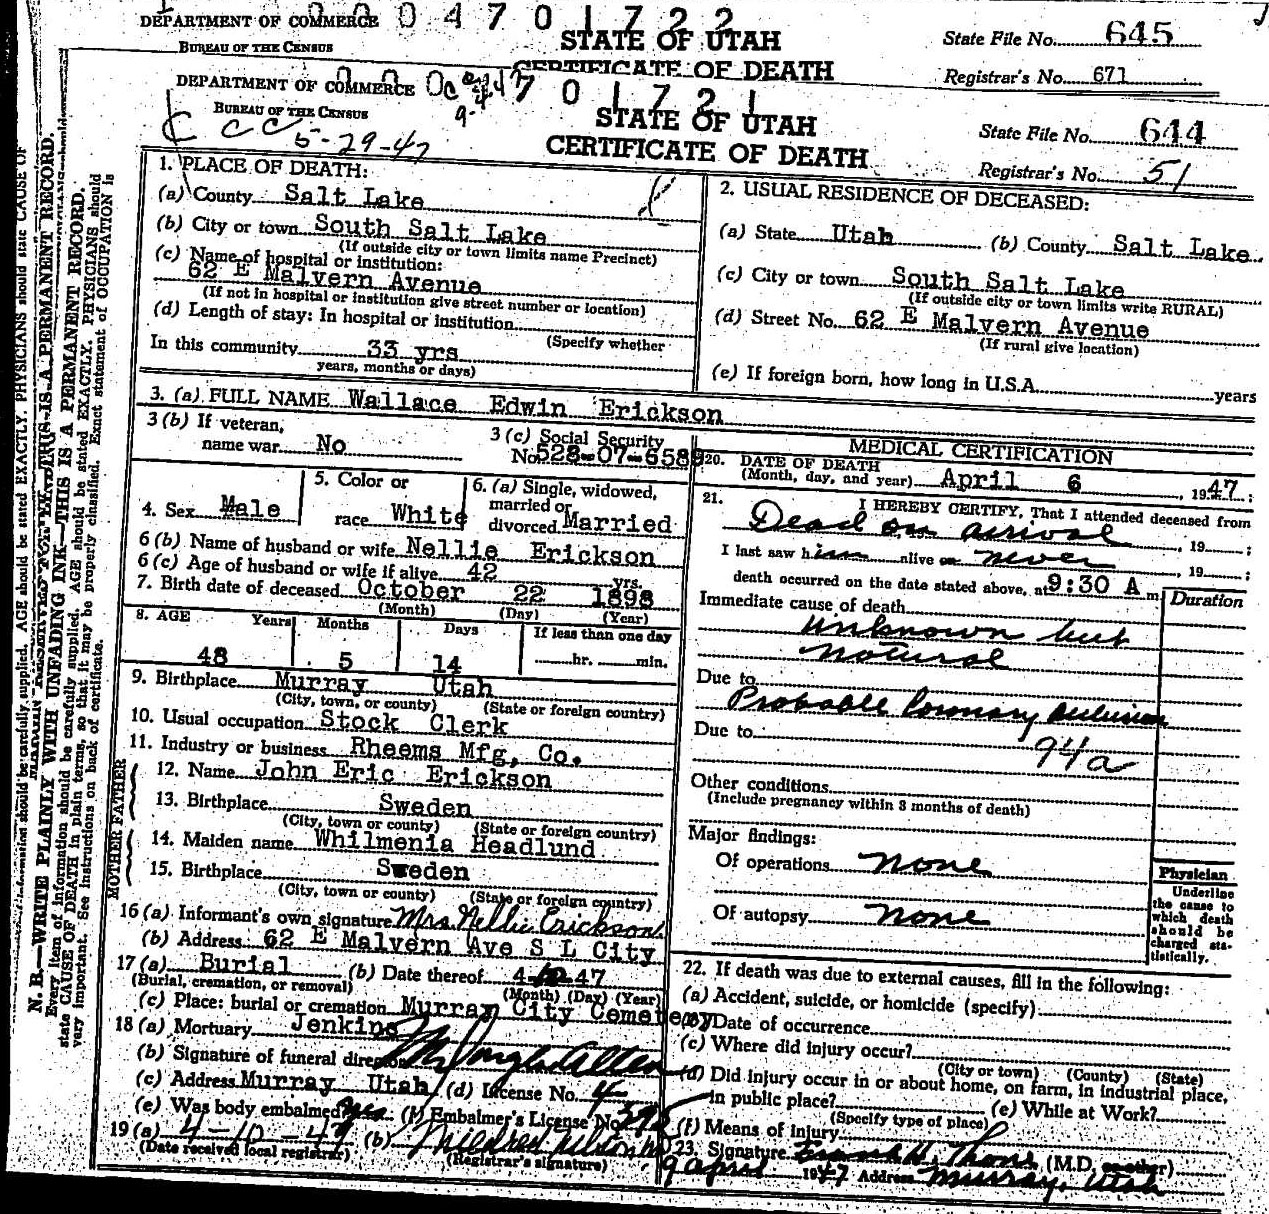 DEPARTMENT OF COMMERCE
BUREAU OF THE CENSUS
0 0 0 4 7 0 1 7 2 2
STATE OF UTAH
CERTIFICATE OF DEATH
State File No. 645
Registrar's No. 671
DEPARTMENT OF COMMERCE
BUREAU OF THE CENSUS
7 0 1 7 2 1
STATE OF UTAH
CERTIFICATE OF DEATH
State File No. 644
Registrar's No. 51
5-29-47
1. PLACE OF DEATH:
(a) County Salt Lake
(b) City or town South Salt Lake
(If outside city or town limits name Precinct)
(c) Name of hospital or institution:
62 E Malvern Avenue
(If not in hospital or institution give street number or location)
(d) Length of stay: In hospital or institution
(Specify whether
In this community 33 yrs
years, months or days)
2. USUAL RESIDENCE OF DECEASED:
(a) State Utah (b) County Salt Lake
(c) City or town South Salt Lake
(If outside city or town limits write RURAL)
(d) Street No. 62 E Malvern Avenue
(If rural give location)
(e) If foreign born, how long in U.S.A. years
3. (a) FULL NAME Wallace Edwin Erickson
3 (b) If veteran,
name war No
3 (c) Social Security
No. 528-07-6589
4. Sex Male
5. Color or
race White
6. (a) Single, widowed,
married or
divorced Married
6 (b) Name of husband or wife Nellie Erickson
6 (c) Age of husband or wife if alive 42 yrs.
7. Birth date of deceased October 22 1898
(Month) (Day) (Year)
8. AGE Years Months Days If less than one day
48 5 14 hr. min.
9. Birthplace Murray Utah
(City, town, or county) (State or foreign country)
10. Usual occupation Stock Clerk
11. Industry or business Rheems Mfg, Co.
FATHER
12. Name John Eric Erickson
13. Birthplace Sweden
(City, town or county) (State or foreign country)
MOTHER
14. Maiden name Whilmenia Headlund
15. Birthplace Sweden
(City, town or county) (State or foreign country)
16 (a) Informant's own signature Mrs. Nellie Erickson
(b) Address 62 E Malvern Ave S L City
17 (a) Burial (b) Date thereof 4-10-47
(Burial, cremation, or removal) (Month) (Day) (Year)
(c) Place: burial or cremation Murray City Cemetery
18 (a) Mortuary Jenkins
(b) Signature of funeral director
(c) Address Murray Utah (d) License No. 4
(e) Was body embalmed yes (f) Embalmer's License No. 395
19 (a) 4-10-47 (b) Mildred Nelson
(Date received local registrar) (Registrar's signature)
MEDICAL CERTIFICATION
20. DATE OF DEATH
(Month, day, and year) April 6, 1947;
21. I HEREBY CERTIFY, That I attended deceased from
Dead on arrival, 19 ;
I last saw him alive on never, 19 ;
death occurred on the date stated above, at 9:30 A m.
Duration
Immediate cause of death
unknown but
natural
Due to
Probable Coronary occlusion
Due to
94a
Other conditions
(Include pregnancy within 3 months of death)
Major findings:
Of operations none
Of autopsy none
Physician
Underline
the cause to
which death
should be
charged sta-
tistically.
22. If death was due to external causes, fill in the following:
(a) Accident, suicide, or homicide (specify)
(b) Date of occurrence
(c) Where did injury occur?
(City or town) (County) (State)
(d) Did injury occur in or about home, on farm, in industrial place,
in public place? (e) While at Work?
(Specify type of place)
(f) Means of injury
23. Signature (M.D. or other)
9 april 1947 Address Murray, Utah
N. B.—WRITE PLAINLY WITH UNFADING INK—THIS IS A PERMANENT RECORD.
Every item of information should be carefully supplied. AGE should be stated EXACTLY. PHYSICIANS should
state CAUSE OF DEATH in plain terms, so that it may be properly classified. Exact statement of OCCUPATION is
very important. See instructions on back of certificate.